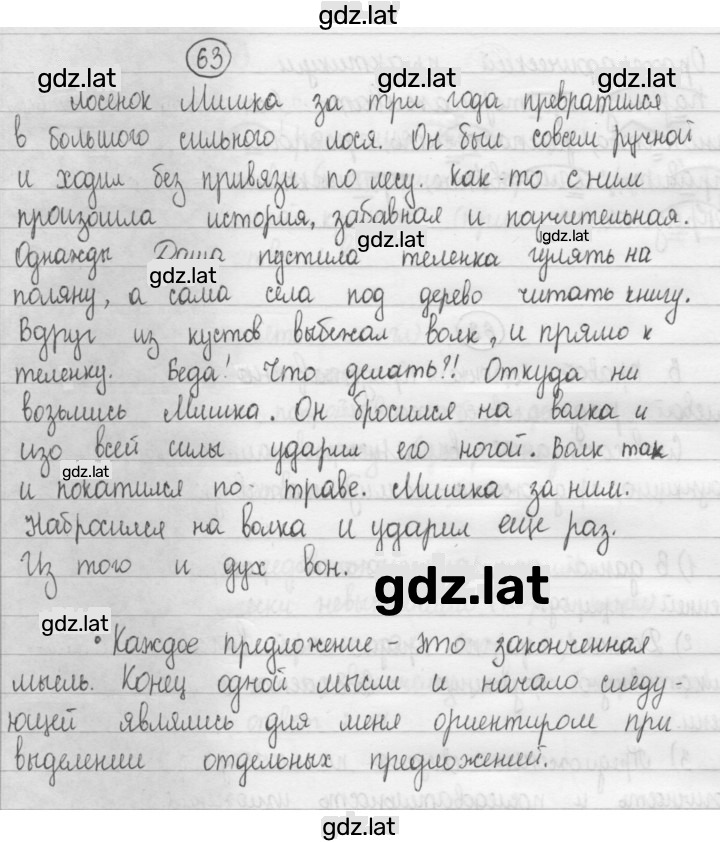 gdz.lat
63
gdz.lat gdz.lat gdz.lat
Лосенок Мишка за три года превратился
в большого сильного лося. Он был совсем ручной
и ходил без привязи по лесу. Как-то с ним
произошла история, забавная и поучительная.
gdz.lat gdz.lat
Однажды Даша пустила теленка гулять на
gdz.lat
поляну, а сама села под дерево читать книгу.
Вдруг из кустов выбежал волк, и прямо к
теленку. Беда! Что делать?!! Откуда ни
возьмись Мишка. Он бросился на волка и
изо всей силы ударил его ногой Волк так
gdz.lat
и покатился по траве. Мишка за ним.
Набросился на волка и ударил еще раз.
Из того и дух вон.
gdz.lat
gdz.lat
• Каждое предложение – это законченная
мысль. Конец одной мысли и начало следу-
ющей являлись для меня ориентиром при
выделении отдельных предложений.
gdz.lat